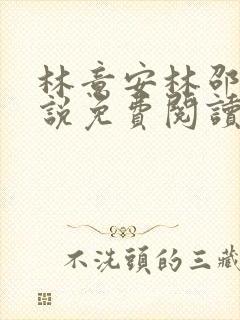 林意安林邵
說免費閱讀
不洗頭的三藏